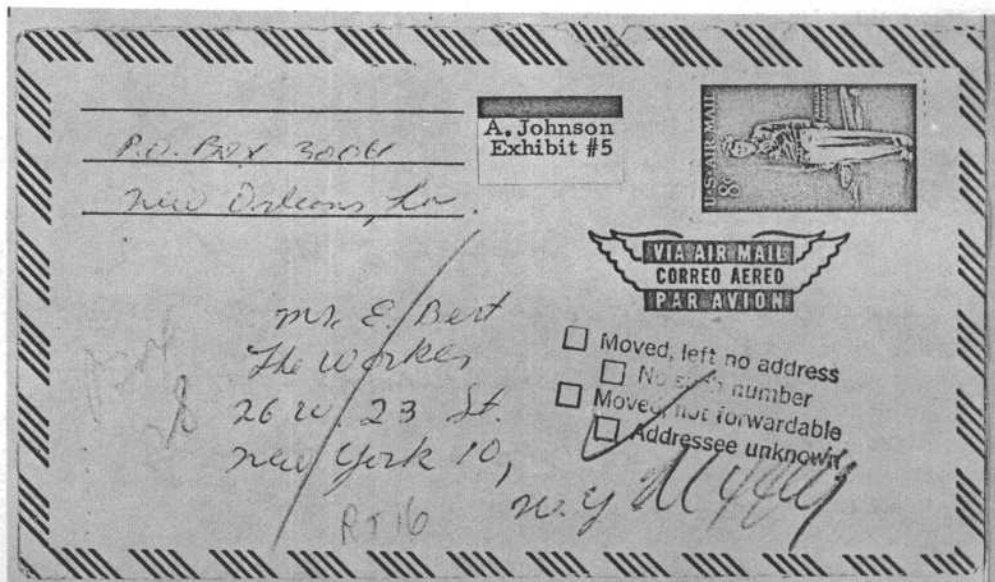 P.O. Box 30061
New Orleans, La.
A. Johnson
Exhibit #5
U.S. AIR MAIL
8c
VIA AIR MAIL
CORREO AEREO
PAR AVION
Mr. E. Bert
The Worker
26 W. 23 St.
New York 10,
N.Y
Moved, left no address
No such number
Moved, not forwardable
Addressee unknown
RT 16